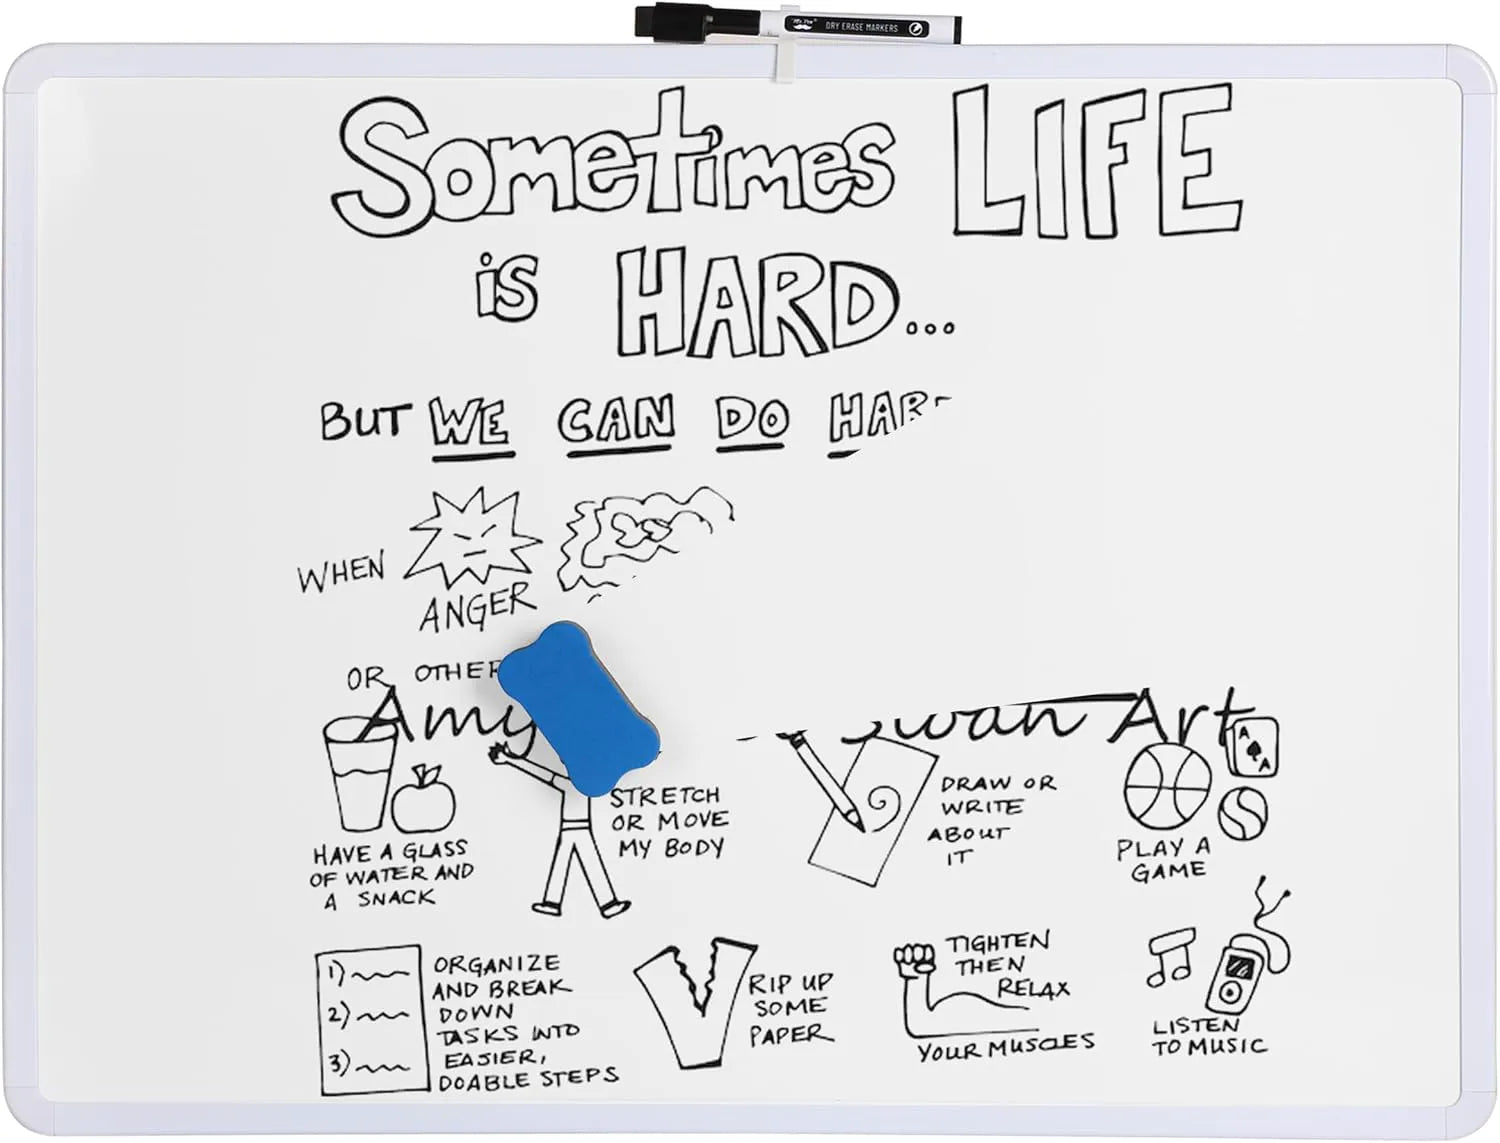 DRY ERASE MARKERS
Sometimes LIFE
is HARD...
BUT WE CAN DO
WHEN
ANGER
OR OTHER
Amy Swan Art
A
A
HAVE A GLASS
OF WATER AND
A SNACK
STRETCH
OR MOVE
MY BODY
DRAW OR
WRITE
ABOUT
IT
PLAY A
GAME
1)
2)
3)
ORGANIZE
AND BREAK
DOWN
TASKS INTO
EASIER,
DOABLE STEPS
RIP UP
SOME
PAPER
TIGHTEN
THEN
RELAX
YOUR MUSCLES
LISTEN
TO MUSIC